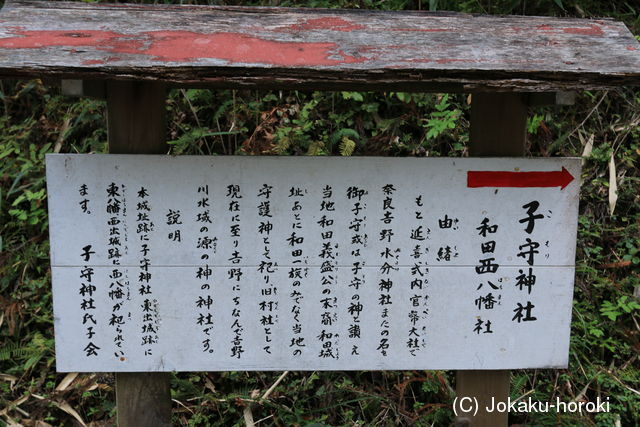 子守神社
和田西八幡社
由緒
もと延喜式内官幣大社で
奈良吉野水分神社またの名を
御子守或は子守の神と讃え
当地和田義盛公の末裔和田城
址あとに和田一族のみでなく当地の
守護神として祀り旧村社として
現在に至り吉野にちなんで吉野
川水域の源の神の神社です。
説明
本城址跡に子守神社 東出城跡に
東八幡西出城跡に西八幡が祀られてい
ます。 子守神社氏子会
(C) Jokaku-horoki